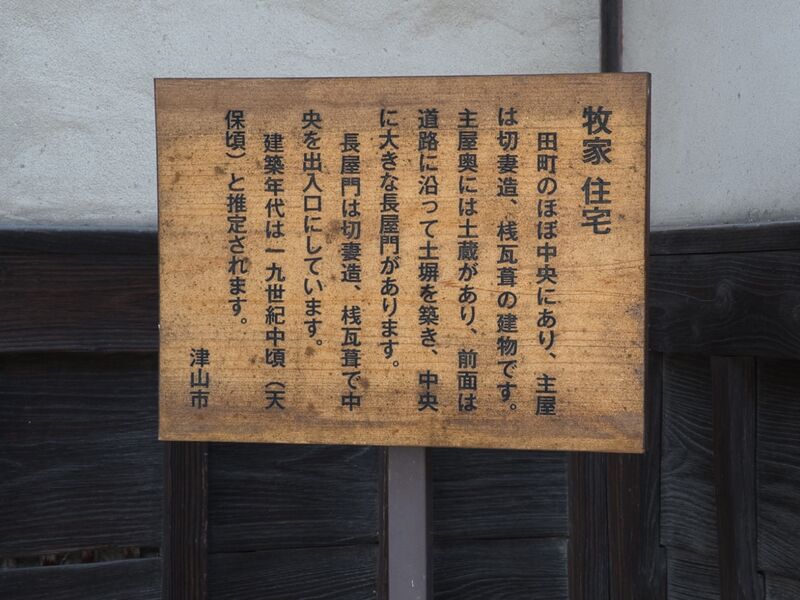 牧家 住宅
田町のほぼ中央にあり、主屋
は切妻造、桟瓦葺の建物です。
主屋奥には土蔵があり、前面は
道路に沿って土塀を築き、中央
に大きな長屋門があります。
長屋門は切妻造、桟瓦葺で中
央を出入口にしています。
建築年代は一九世紀中頃（天
保頃）と推定されます。
津山市